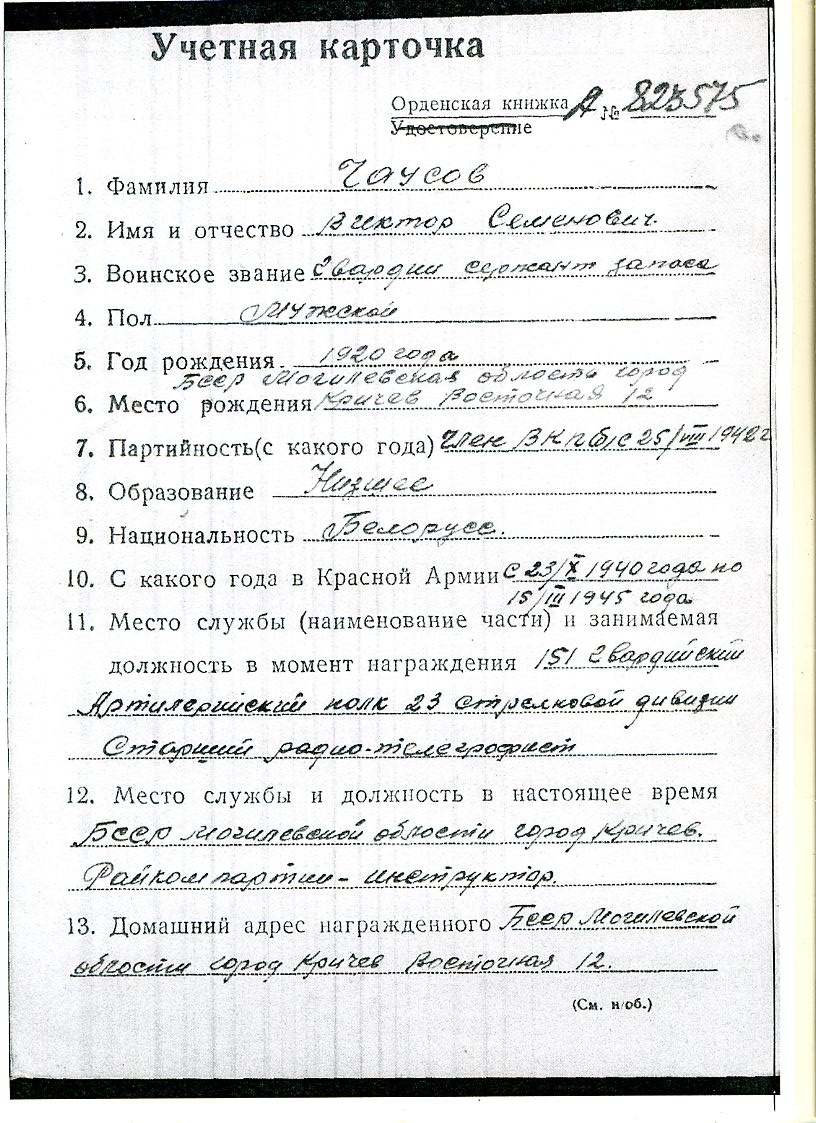 Учетная карточка
Орденская книжка А № 823575
Удостоверение
1. Фамилия Чаусов
2. Имя и отчество Виктор Семенович
3. Воинское звание Гвардии сержант запаса
4. Пол Мужской
5. Год рождения 1920 года
Бсср Могилевская область город
6. Место рождения Кричев Восточная 12
7. Партийность(с какого года) Член ВКП б/с 25/VIII 1942 г
8. Образование Низшее
9. Национальность Белорусс.
10. С какого года в Красной Армии с 23/X 1940 года по
15/III 1945 года
11. Место службы (наименование части) и занимаемая
должность в момент награждения 151 Гвардийский
Артилерийский полк 23 стрелковой дивизии
Старший радио-телеграфист
12. Место службы и должность в настоящее время
Бсср Могилевской области город Кричев.
Райком партии - инструктор.
13. Домашний адрес награжденного Бсср Могилевской
области город Кричев Восточная 12.
(См. н/об.)